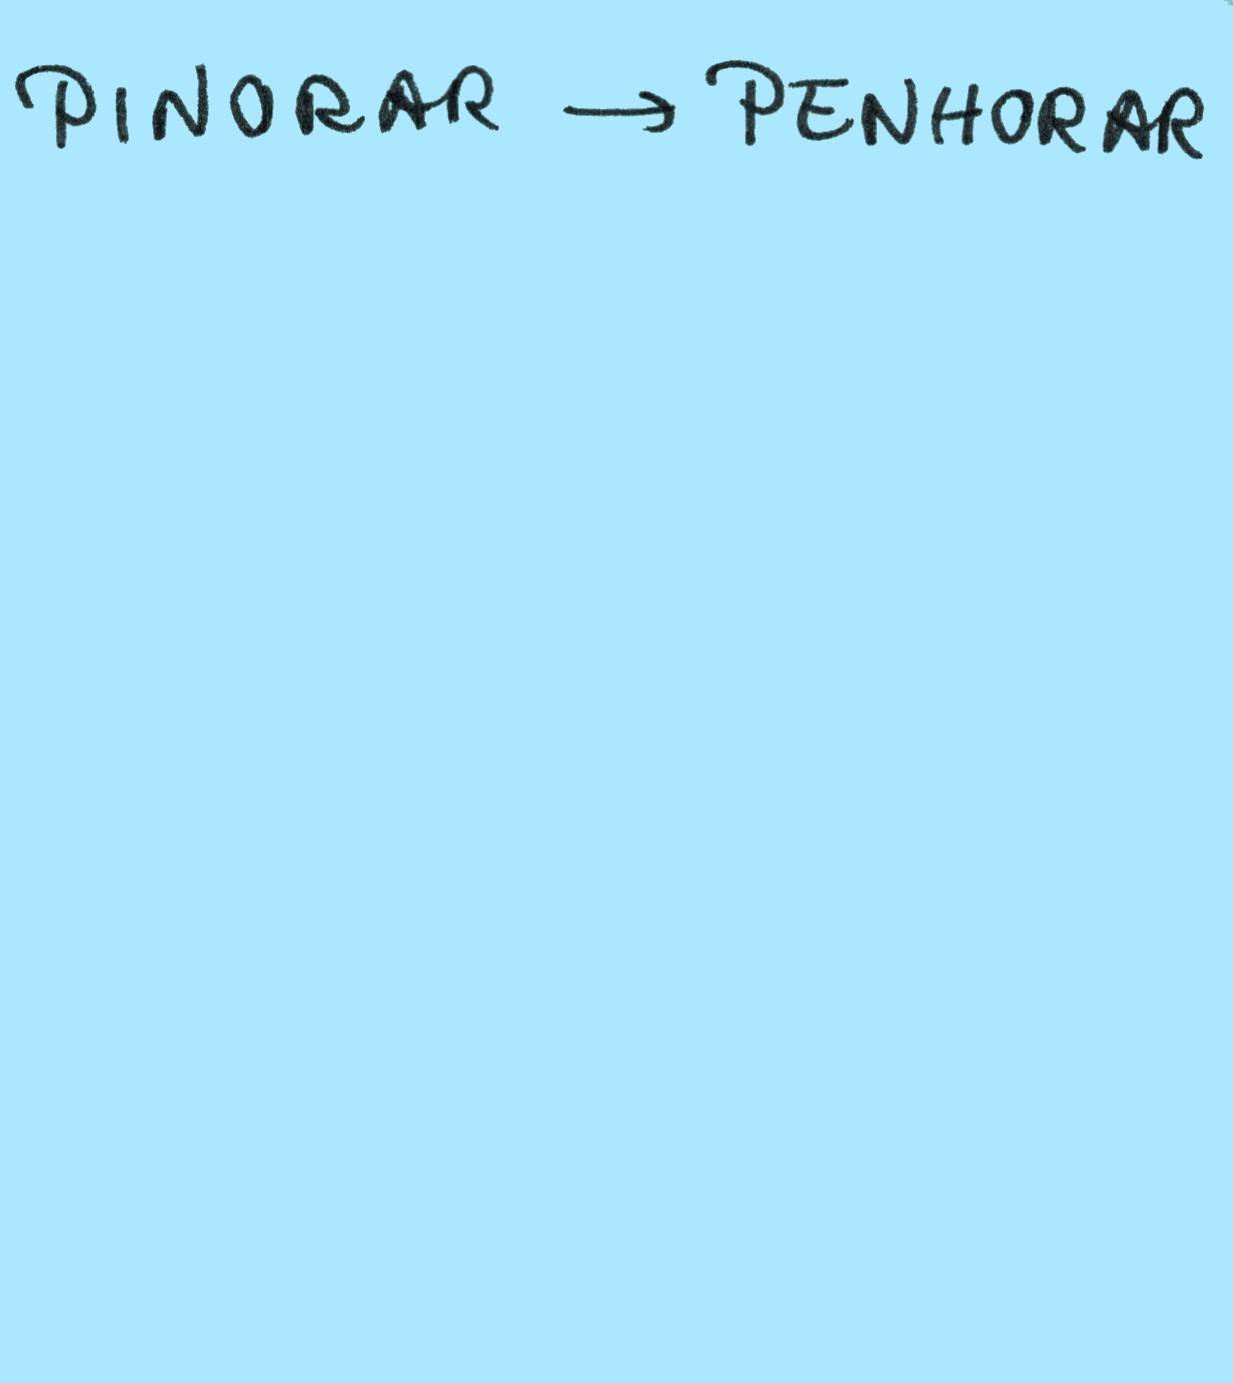 PINORAR → PENHORAR